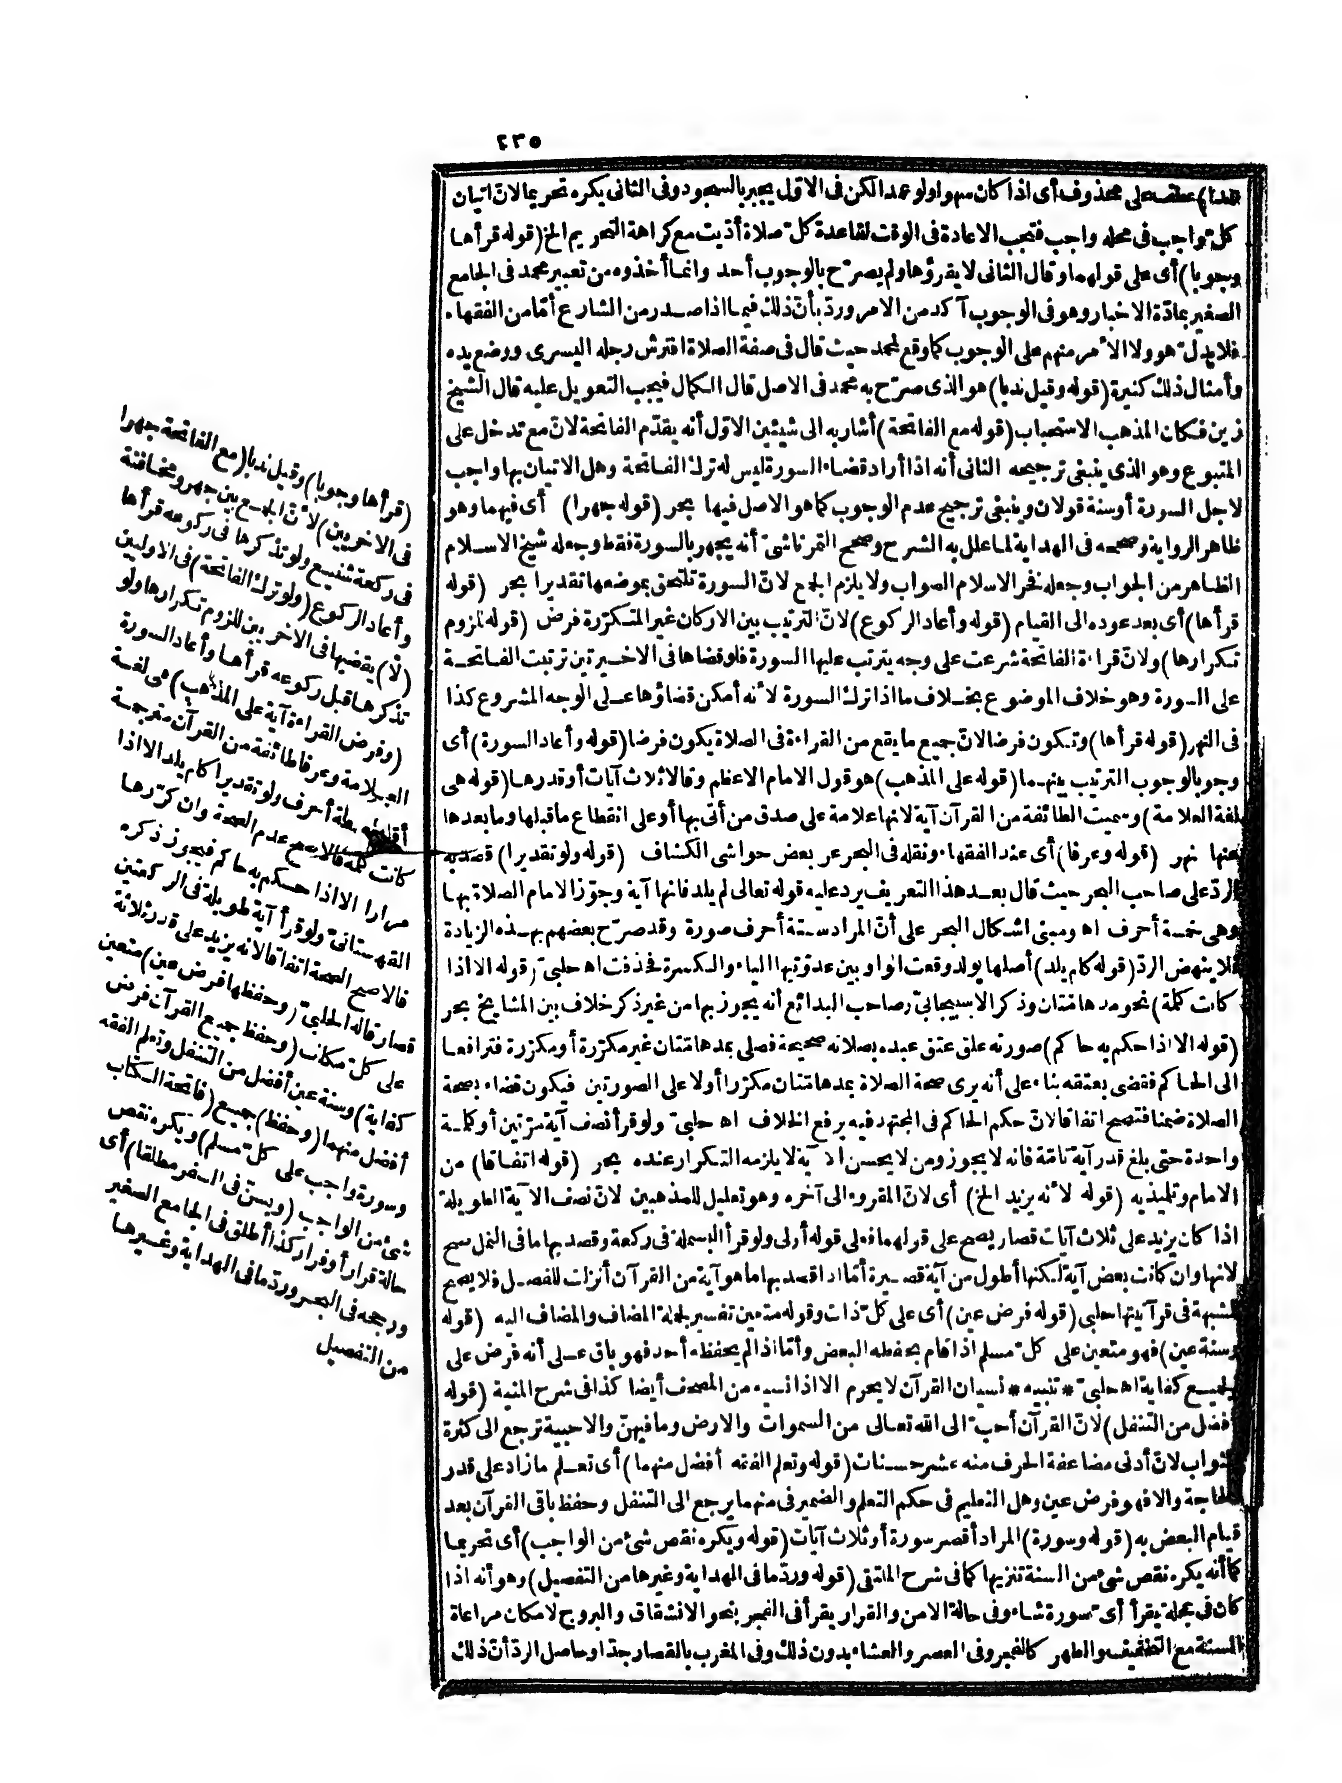 ٢٣٥
عمدا) عطف على محذوف أى اذا كان سهوا ولو عمدا لكن فى الاوّل يجبر بالسجود وفى الثانى يكره تحريما لانّ اتيان
كلّ واجب فى محله واجب فتجب الاعادة فى الوقت لقاعدة كلّ صلاة أدّيت مع كراهة التحريم الخ (قوله قرأها
وجوبا) أى على قولهما وقال الثانى لا يقرؤها ولم يصرّح بالوجوب أحد وانما أخذوه من تعبير محمد فى الجامع
الصغير بمادّة الاخبار وهو فى الوجوب آكد من الامر وردّ بأنّ ذلك فيما اذا صدر من الشارع أمّا من الفقهاء
فلا يدلّ هو ولا الأمر منهم على الوجوب كما وقع لمحمد حيث قال فى صفة الصلاة افترش رجله اليسرى ووضع يده
وأمثال ذلك كثيرة (قوله وقيل ندبا) هو الذى صرّح به محمد فى الاصل قال الكمال فيجب التعويل عليه قال الشيخ
زين فكان المذهب الاستحباب (قوله مع الفاتحة) أشار به الى شيئين الاوّل أنه يقدّم الفاتحة لانّ مع تدخل على
المتبوع وهو الذى ينبغى ترجيحه الثانى أنه اذا أراد قضاء السورة ليس له ترك الفاتحة وهل الاتيان بها واجب
لاجل السورة أوسنة قولان وينبغى ترجيح عدم الوجوب كما هو الاصل فيها بحر (قوله جهرا) أى فيهما وهو
ظاهر الرواية وصححه فى الهداية لما علل به الشرح وصحح التمرتاشىّ أنه يجهر بالسورة فقط وجعله شيخ الاسلام
الظاهر من الجواب وجعله فخر الاسلام الصواب ولا يلزم الجمع لانّ السورة تلتحق بموضعها تقديرا بحر (قوله
قرأها) أى بعد عوده الى القيام (قوله وأعاد الركوع) لانّ الترتيب بين الاركان غير المتكرّرة فرض (قوله للزوم
تكرارها) ولانّ قراءة الفاتحة شرعت على وجه يترتب عليها السورة فلو قضاها فى الاخيرتين ترتبت الفاتحة
على السورة وهو خلاف الموضوع بخلاف ما اذا ترك السورة لأنه أمكن قضاؤها على الوجه المشروع كذا
فى النهر (قوله قرأها) وتكون فرضا لانّ جميع ما يقع من القراءة فى الصلاة يكون فرضا (قوله وأعاد السورة) أى
وجوبا لوجوب الترتيب بينهما (قوله على المذهب) هو قول الامام الاعظم وقالا ثلاث آيات أو قدرها (قوله هى
لغة العلامة) وسميت الطائفة من القرآن آية لانها علامة على صدق من أتى بها أو على انقطاع ما قبلها وما بعدها
عنها نهر (قوله وعرفا) أى عند الفقهاء ونقله فى البحر عن بعض حواشى الكشاف (قوله ولو تقديرا) قصد به
الردّ على صاحب البحر حيث قال بعد هذا التعريف يرد عليه قوله تعالى لم يلد فانها آية وجوّز الامام الصلاة بها
وهى خمسة أحرف اه ومبنى اشكال البحر على أنّ المراد ستة أحرف صورة وقد صرّح بعضهم بهذه الزيادة
فلا ينهض الردّ (قوله كام يلد) أصلها يولد وقعت الواو بين عدوّتيها الياء والكسرة فحذفت اه حلبىّ (قوله الا اذا
كانت كلمة) نحو مدهامتان وذكر الاسبيجابىّ وصاحب البدائع أنه يجوز بها من غير ذكر خلاف بين المشايخ بحر
(قوله الا اذا حكم به حاكم) صورته علق عتق عبده بصلاته صحيحة فصلى بمدهامتان غير مكرّرة أو مكرّرة فترافعا
الى الحاكم فقضى بعتقه بناء على أنه يرى صحة الصلاة بمدهامتان مكرّرا أولا على الصورتين فيكون قضاء بصحة
الصلاة ضمنا فتصح اتفاقا لانّ حكم الحاكم فى المجتهد فيه يرفع الخلاف اه حلبىّ ولو قرأ نصف آية مرّتين أو كلمة
واحدة حتى بلغ قدر آية تامّة فانه لا يجوز ومن لا يحسن الآية لا يلزمه التكرار عنده بحر (قوله اتفاقا) من
الامام وتلميذيه (قوله لأنه يزيد الخ) أى لانّ المقروء الى آخره وهو تعليل للمذهبين لانّ نصف الآية الطويلة
اذا كان يزيد على ثلاث آيات قصار يصح على قولهما فعلى قوله أولى ولو قرأ البسملة فى ركعة وقصد بها ما فى النمل صح
لانها وان كانت بعض آية لكنها أطول من آية قصيرة أمّا اذا قصد بها ما هو آية من القرآن أنزلت للفصل فلا يصح
للشبهة فى قرآنيتها حلبى (قوله فرض عين) أى على كلّ ذات وقوله متعين تفسير لجملة المضاف والمضاف اليه (قوله
وسنة عين) فهو متعين على كلّ مسلم اذا قام بحفظه البعض وأمّا اذا لم يحفظه أحد فهو باق على أنه فرض على
الجميع كفاية اه حلبىّ * تنبيه * نسيان القرآن لا يحرم الا اذا نسيه من المصحف أيضا كذا فى شرح المنية (قوله
أفضل من التنفل) لانّ القرآن أحبّ الى الله تعالى من السموات والارض وما فيهنّ والاحبية ترجع الى كثرة
الثواب لانّ أدنى مضاعفة الحرف منه عشر حسنات (قوله وتعلم الفقه أفضل منهما) أى تعلم ما زاد على قدر
الحاجة والا فهو فرض عين وهل التعليم فى حكم التعلم والضمير فى منهما يرجع الى التنفل وحفظ باقى القرآن بعد
قيام البعض به (قوله وسورة) المراد أقصر سورة أو ثلاث آيات (قوله ويكره نقص شئ من الواجب) أى تحريما
كما أنه يكره نقص شئ من السنة تنزيها كما فى شرح الملتقى (قوله وردّ ما فى الهداية وغيرها من التفصيل) وهو أنه اذا
كان فى عجلة يقرأ أىّ سورة شاء وفى حالة الامن والقرار يقرأ فى الفجر بنحو الانشقاق والبروج لامكان مراعاة
السنة مع التخفيف والظهر كالفجر وفى العصر والعشاء بدون ذلك وفى المغرب بالقصار جدّا وحاصل الردّ أنّ ذلك
(قرأها وجوبا) وقيل ندبا (مع الفاتحة جهرا
فى الاخريين) لأنّ الجمع بين جهر ومخافتة
فى ركعة شنيع ولو تذكرها فى ركوعه قرأها
وأعاد الركوع (ولو ترك الفاتحة) فى الاوليين
(لا) يقضيها فى الاخريين للزوم تكرارها ولو
تذكرها قبل ركوعه قرأها وأعاد السورة
(وفرض القراءة آية على المذهب) هى لغة
العلامة وعرفا طائفة من القرآن مترجمة
أقلها ستة أحرف ولو تقديرا كام يلد الا اذا
كانت كلمة فالاصح عدم الصحة وان كرّرها
مرارا الا اذا حكم به حاكم فيجوز ذكره
القهستانىّ ولو قرأ آية طويلة فى الركعتين
فالاصح الصحة اتفاقا لانه يزيد على قدر ثلاثة
قصار قاله الحلبىّ (وحفظها فرض عين) متعين
على كلّ مكلف (وحفظ جميع القرآن فرض
كفاية) وسنة عين أفضل من التنفل وتعلم الفقه
أفضل منهما (وحفظ) جميع (فاتحة الكتاب
وسورة واجب على كلّ مسلم) ويكره نقص
شئ من الواجب (ويسنّ فى السفر مطلقا) أى
حالة قرار أو فرار كذا أطلق فى الجامع الصغير
ورجحه فى البحر وردّ ما فى الهداية وغيرها
من التفصيل